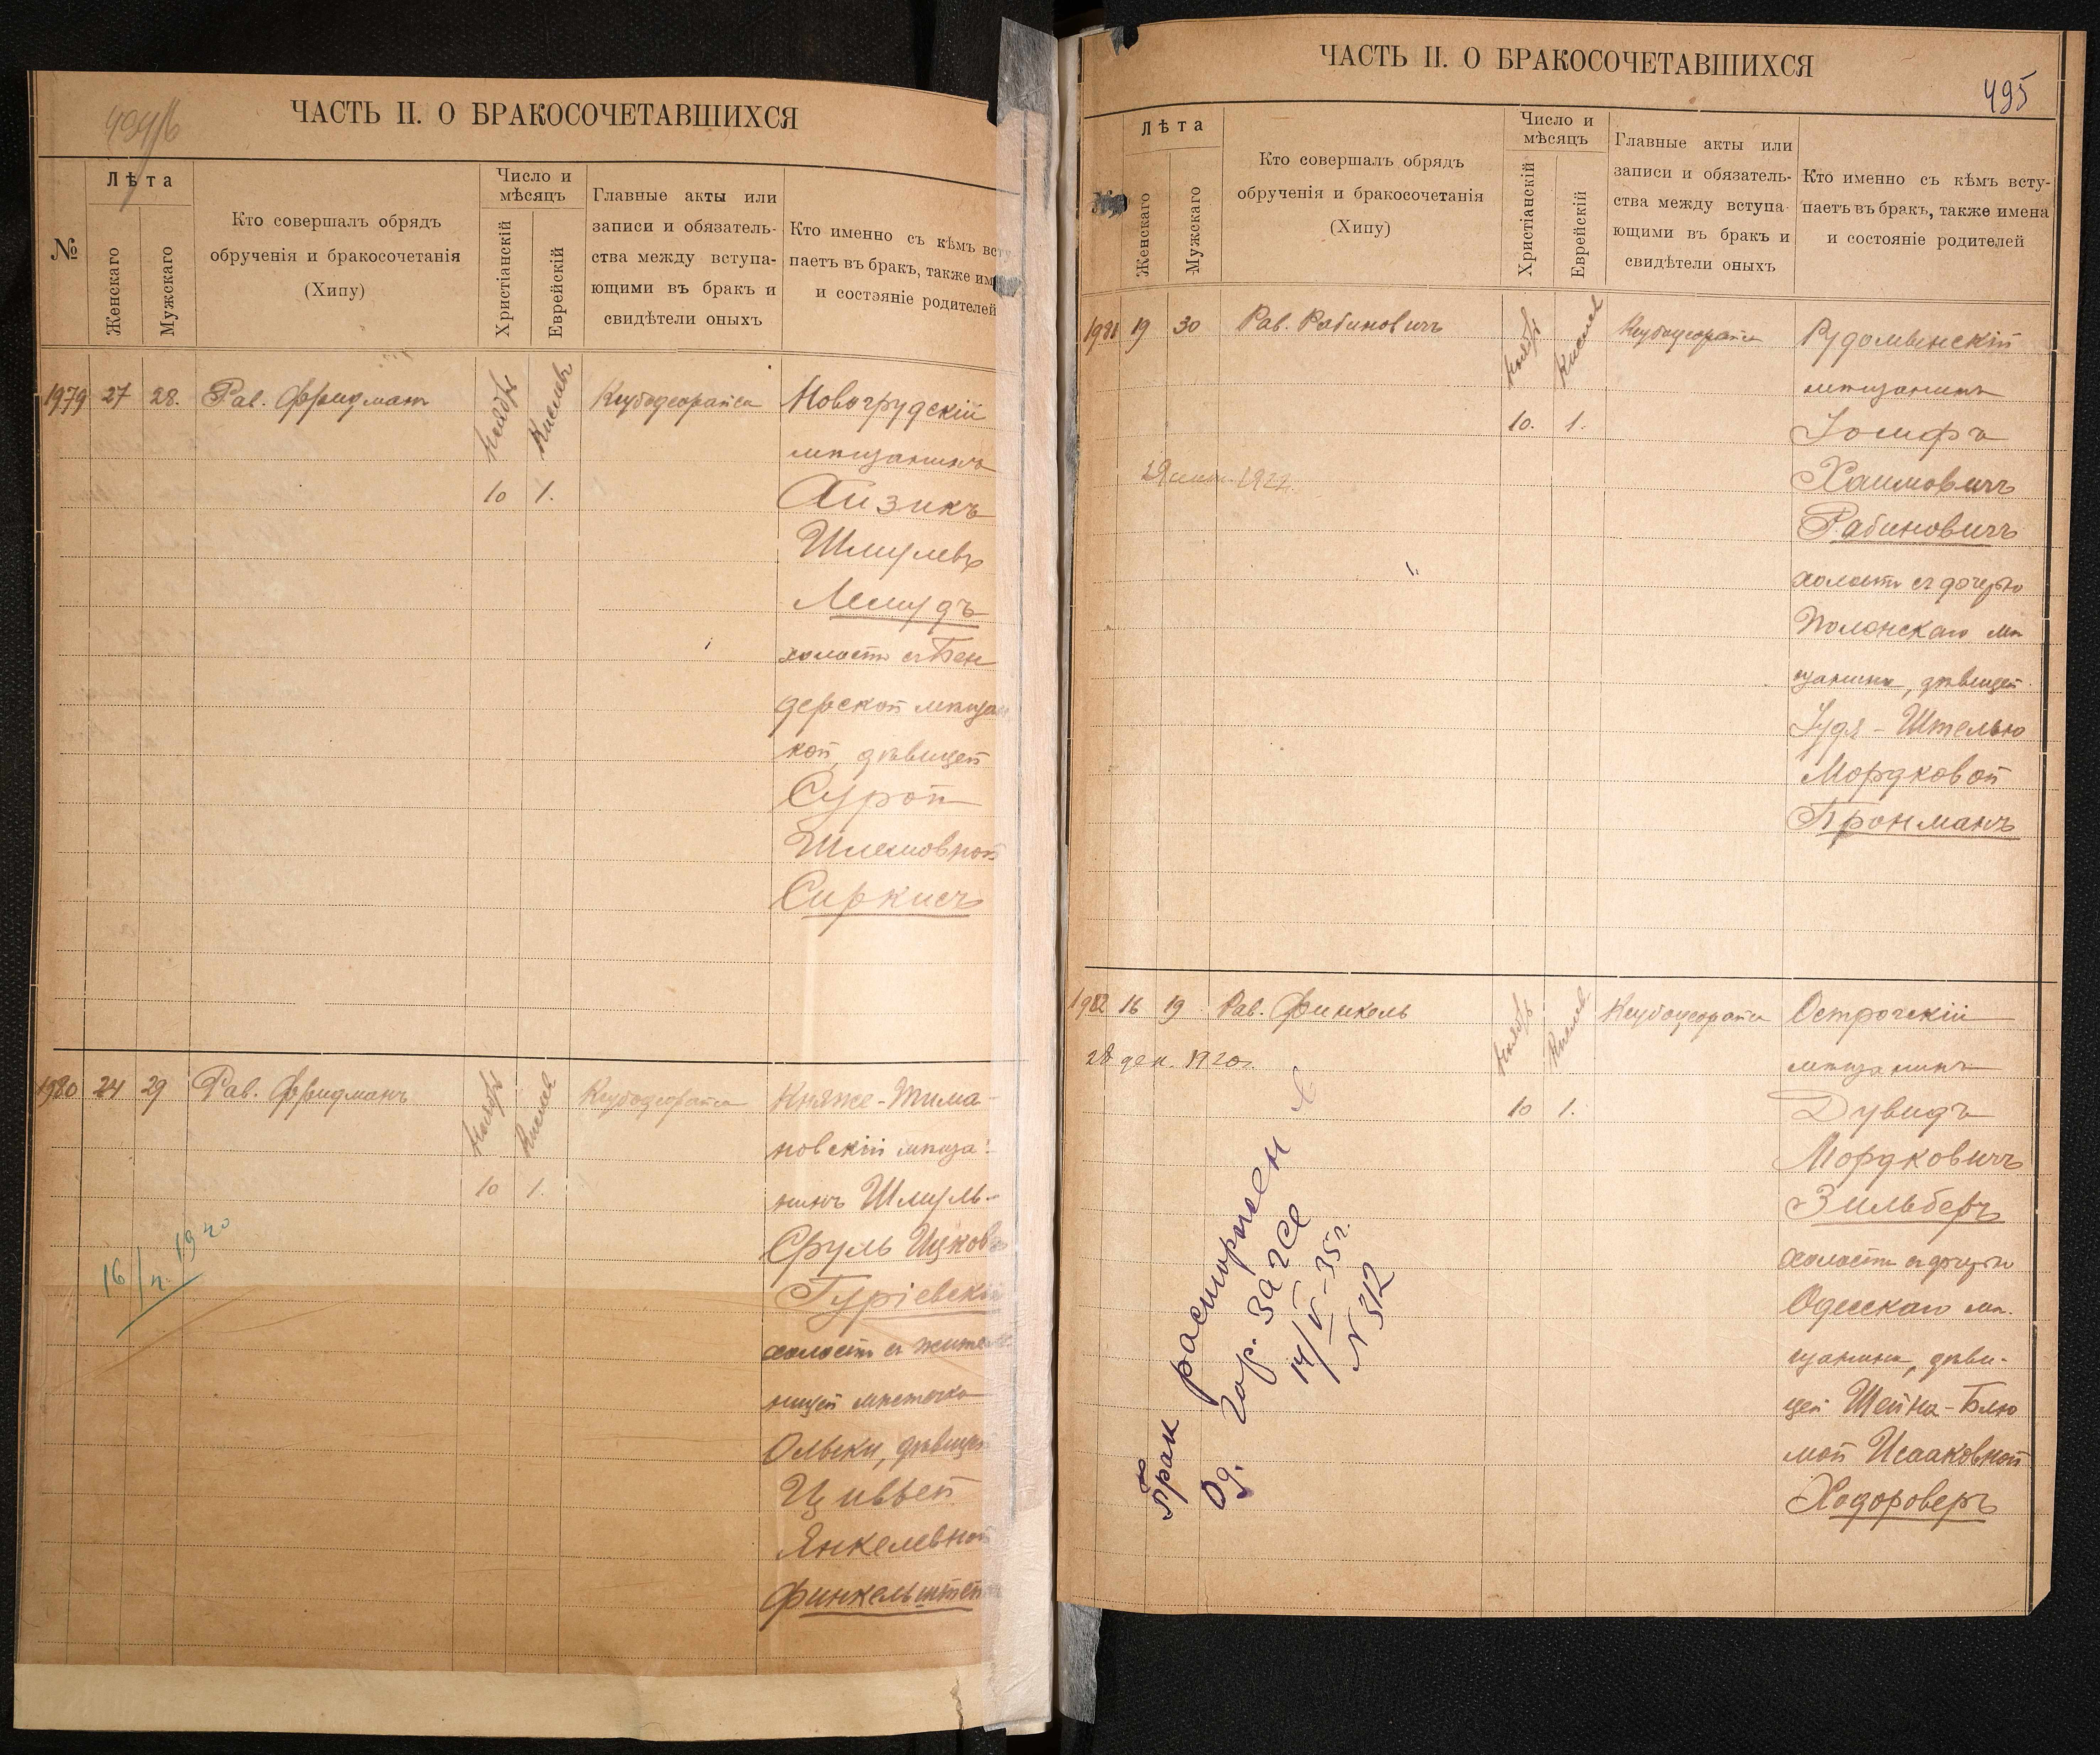 494/б
ЧАСТЬ II. О БРАКОСОЧЕТАВШИХСЯ
№
Лѣта
Женскаго
Мужскаго
Кто совершалъ обрядъ
обрученія и бракосочетанія
(Хипу)
Число и
мѣсяцъ
Христіанскій
Еврейскій
Главные акты или
записи и обязатель-
ства между вступа-
ющими въ бракъ и
свидѣтели оныхъ
Кто именно съ кѣмъ всту
паетъ въ бракъ, также им
и состояніе родителей
1979 27 28. Рав. Фридман
Ноябрь Кислевъ
10 1.
Новогрудскій
мѣщанинъ
Айзикъ
Шмулевъ
холостъ съ Бен
дерской мѣщан
кой, дѣвицей
Сурой
Шлемовной
Сиркисъ
1980 24 29 Рав. Фридманъ
Ноябрь Кислев
10 1.
Княже-Тима-
новскій мѣща-
нинъ Шмуль-
Сруль Ицковъ
Гуріевскій
холостъ съ житель
ницей мѣстечка
Олыки, дѣвицей
Цивьей
Янкелевной
Финкельштейн
16/II 1920
495
ЧАСТЬ II. О БРАКОСОЧЕТАВШИХСЯ
№
Лѣта
Женскаго
Мужскаго
Кто совершалъ обрядъ
обрученія и бракосочетанія
(Хипу)
Число и
мѣсяцъ
Христіанскій
Еврейскій
Главные акты или
записи и обязатель-
ства между вступа
ющими въ бракъ и
свидѣтели оныхъ
Кто именно съ кѣмъ всту-
паетъ въ бракъ, также имена
и состояніе родителей
1981 19 30 Рав. Рабиновичъ
Ноябрь Кислев
10. 1.
1922.
Рудомынскій
мѣщанинъ
Іосифъ
Хаимовичъ
Рабиновичъ
холостъ съ дочерью
Полонскаго мѣ
щанина, дѣвицей
Іудя-Штелью
Мордковой
Бронманъ
1982 16 19 Рав. Финкель
Ноябрь Кислев
10 1.
28 дек. 1920г.
Острогскій
мѣщанинъ
Дувидъ
Мордковичъ
Зильберъ
холостъ съ дочерью
Одесскаго мѣ.
щанина, дѣви-
цей Шейна-Блю
мой Исааковной
Ходороверъ
Брак расторжен в
Од. Гор. ЗАГСе
14/V-35г.
N 312